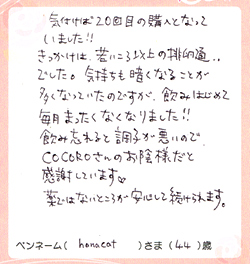 気付けば20回目の購入となって
いました!!
きっかけは、若いころ以上の排的通..
でした。気持ちも暗くなることが
多くなっていたのですが、飲みはじめて
毎月まったくなくなりました!!
飲み忘れると調子が悪いので、
COCOROさんのお陰様だと
感謝しています
薬ではないところが安心して続けられます。
ペンネーム( honacat )さま (44) 歳